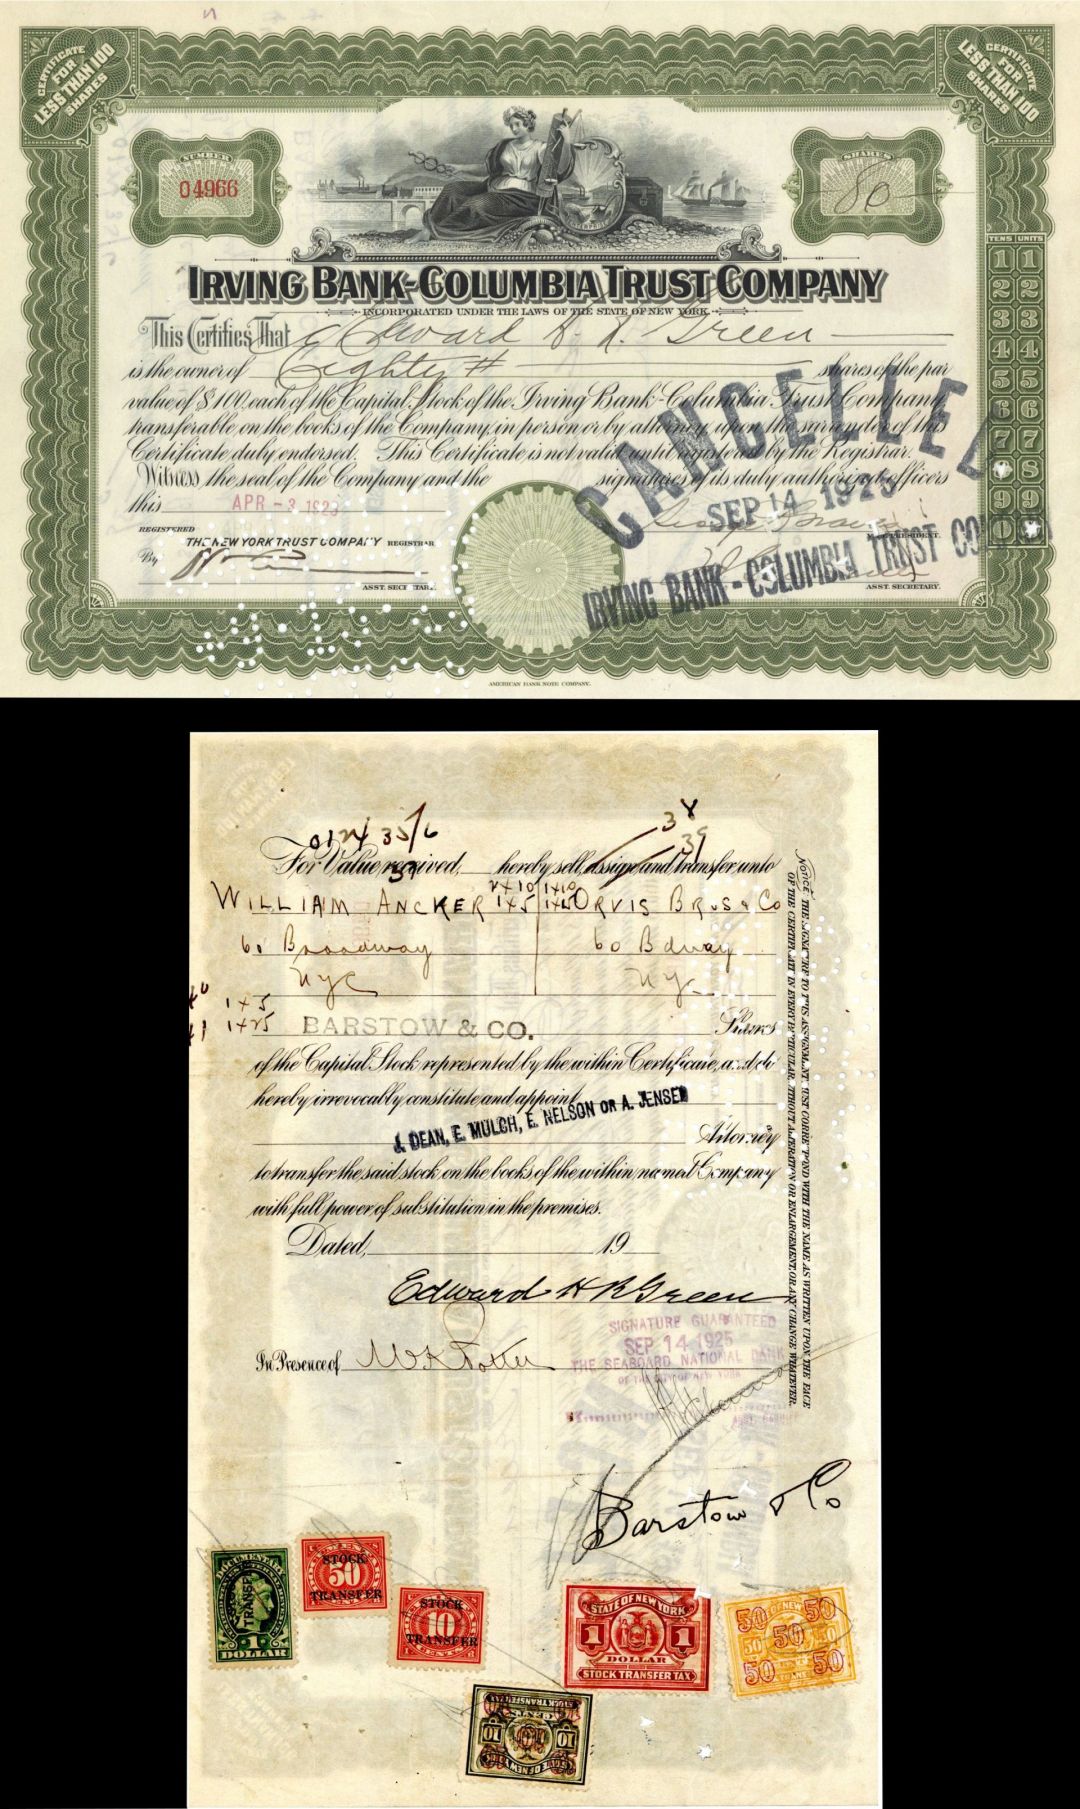 CERTIFICATE FOR LESS THAN 100 SHARES
CERTIFICATE FOR LESS THAN 100 SHARES
NUMBER
04966
SHARES
80
IRVING BANK-COLUMBIA TRUST COMPANY
INCORPORATED UNDER THE LAWS OF THE STATE OF NEW YORK
TENS UNITS
1 1
2 2
3 3
4 4
5 5
6 6
7 7
8
9 9
This Certifies That Edward H. R. Green
is the owner of Eighty shares of the par
value of $100 each of the Capital Stock of the Irving Bank-Columbia Trust Company
transferable on the books of the Company in person or by attorney upon the surrender of this
Certificate duly endorsed. This Certificate is not valid until registered by the Registrar.
Witness the seal of the Company and the signatures of its duly authorized officers
this APR - 3 1923
CANCELLED
SEP 14 1925
IRVING BANK - COLUMBIA TRUST
REGISTERED
THE NEW YORK TRUST COMPANY REGISTRAR
By
ASST. SECRETARY.
PRESIDENT.
ASST. SECRETARY.
AMERICAN BANK NOTE COMPANY.
38
39
For Value received, hereby sell, assign and transfer unto
WILLIAM ANCKER 2x10 1x5 1x10 ORVIS BROS & Co
60 Broadway 60 Bdway
NYC NYC
1x5
1x25 BARSTOW & CO. Shares
of the Capital Stock represented by the within Certificate, and do
hereby irrevocably constitute and appoint
J. DEAN, E. MULCH, E. NELSON OR A. JENSEN
Attorney
to transfer the said stock on the books of the within named Company
with full power of substitution in the premises.
Dated, 19
Edward H R Green
In Presence of
SIGNATURE GUARANTEED
SEP 14 1925
THE SEABOARD NATIONAL BANK
OF THE CITY OF NEW YORK
NOTICE. THE SIGNATURE TO THIS ASSIGNMENT MUST CORRESPOND WITH THE NAME AS WRITTEN UPON THE FACE
OF THE CERTIFICATE IN EVERY PARTICULAR, WITHOUT ALTERATION OR ENLARGEMENT, OR ANY CHANGE WHATEVER.
Barstow & Co
DOCUMENTARY
STOCK TRANSFER
1
DOLLAR
STOCK
50
TRANSFER
STOCK
10
TRANSFER
STATE OF NEW YORK
1 1
DOLLAR
STOCK TRANSFER TAX
50 50
50 50 50
50 50
STOCK TRANSFER TAX
CENTS
10 10
STATE OF NEW YORK